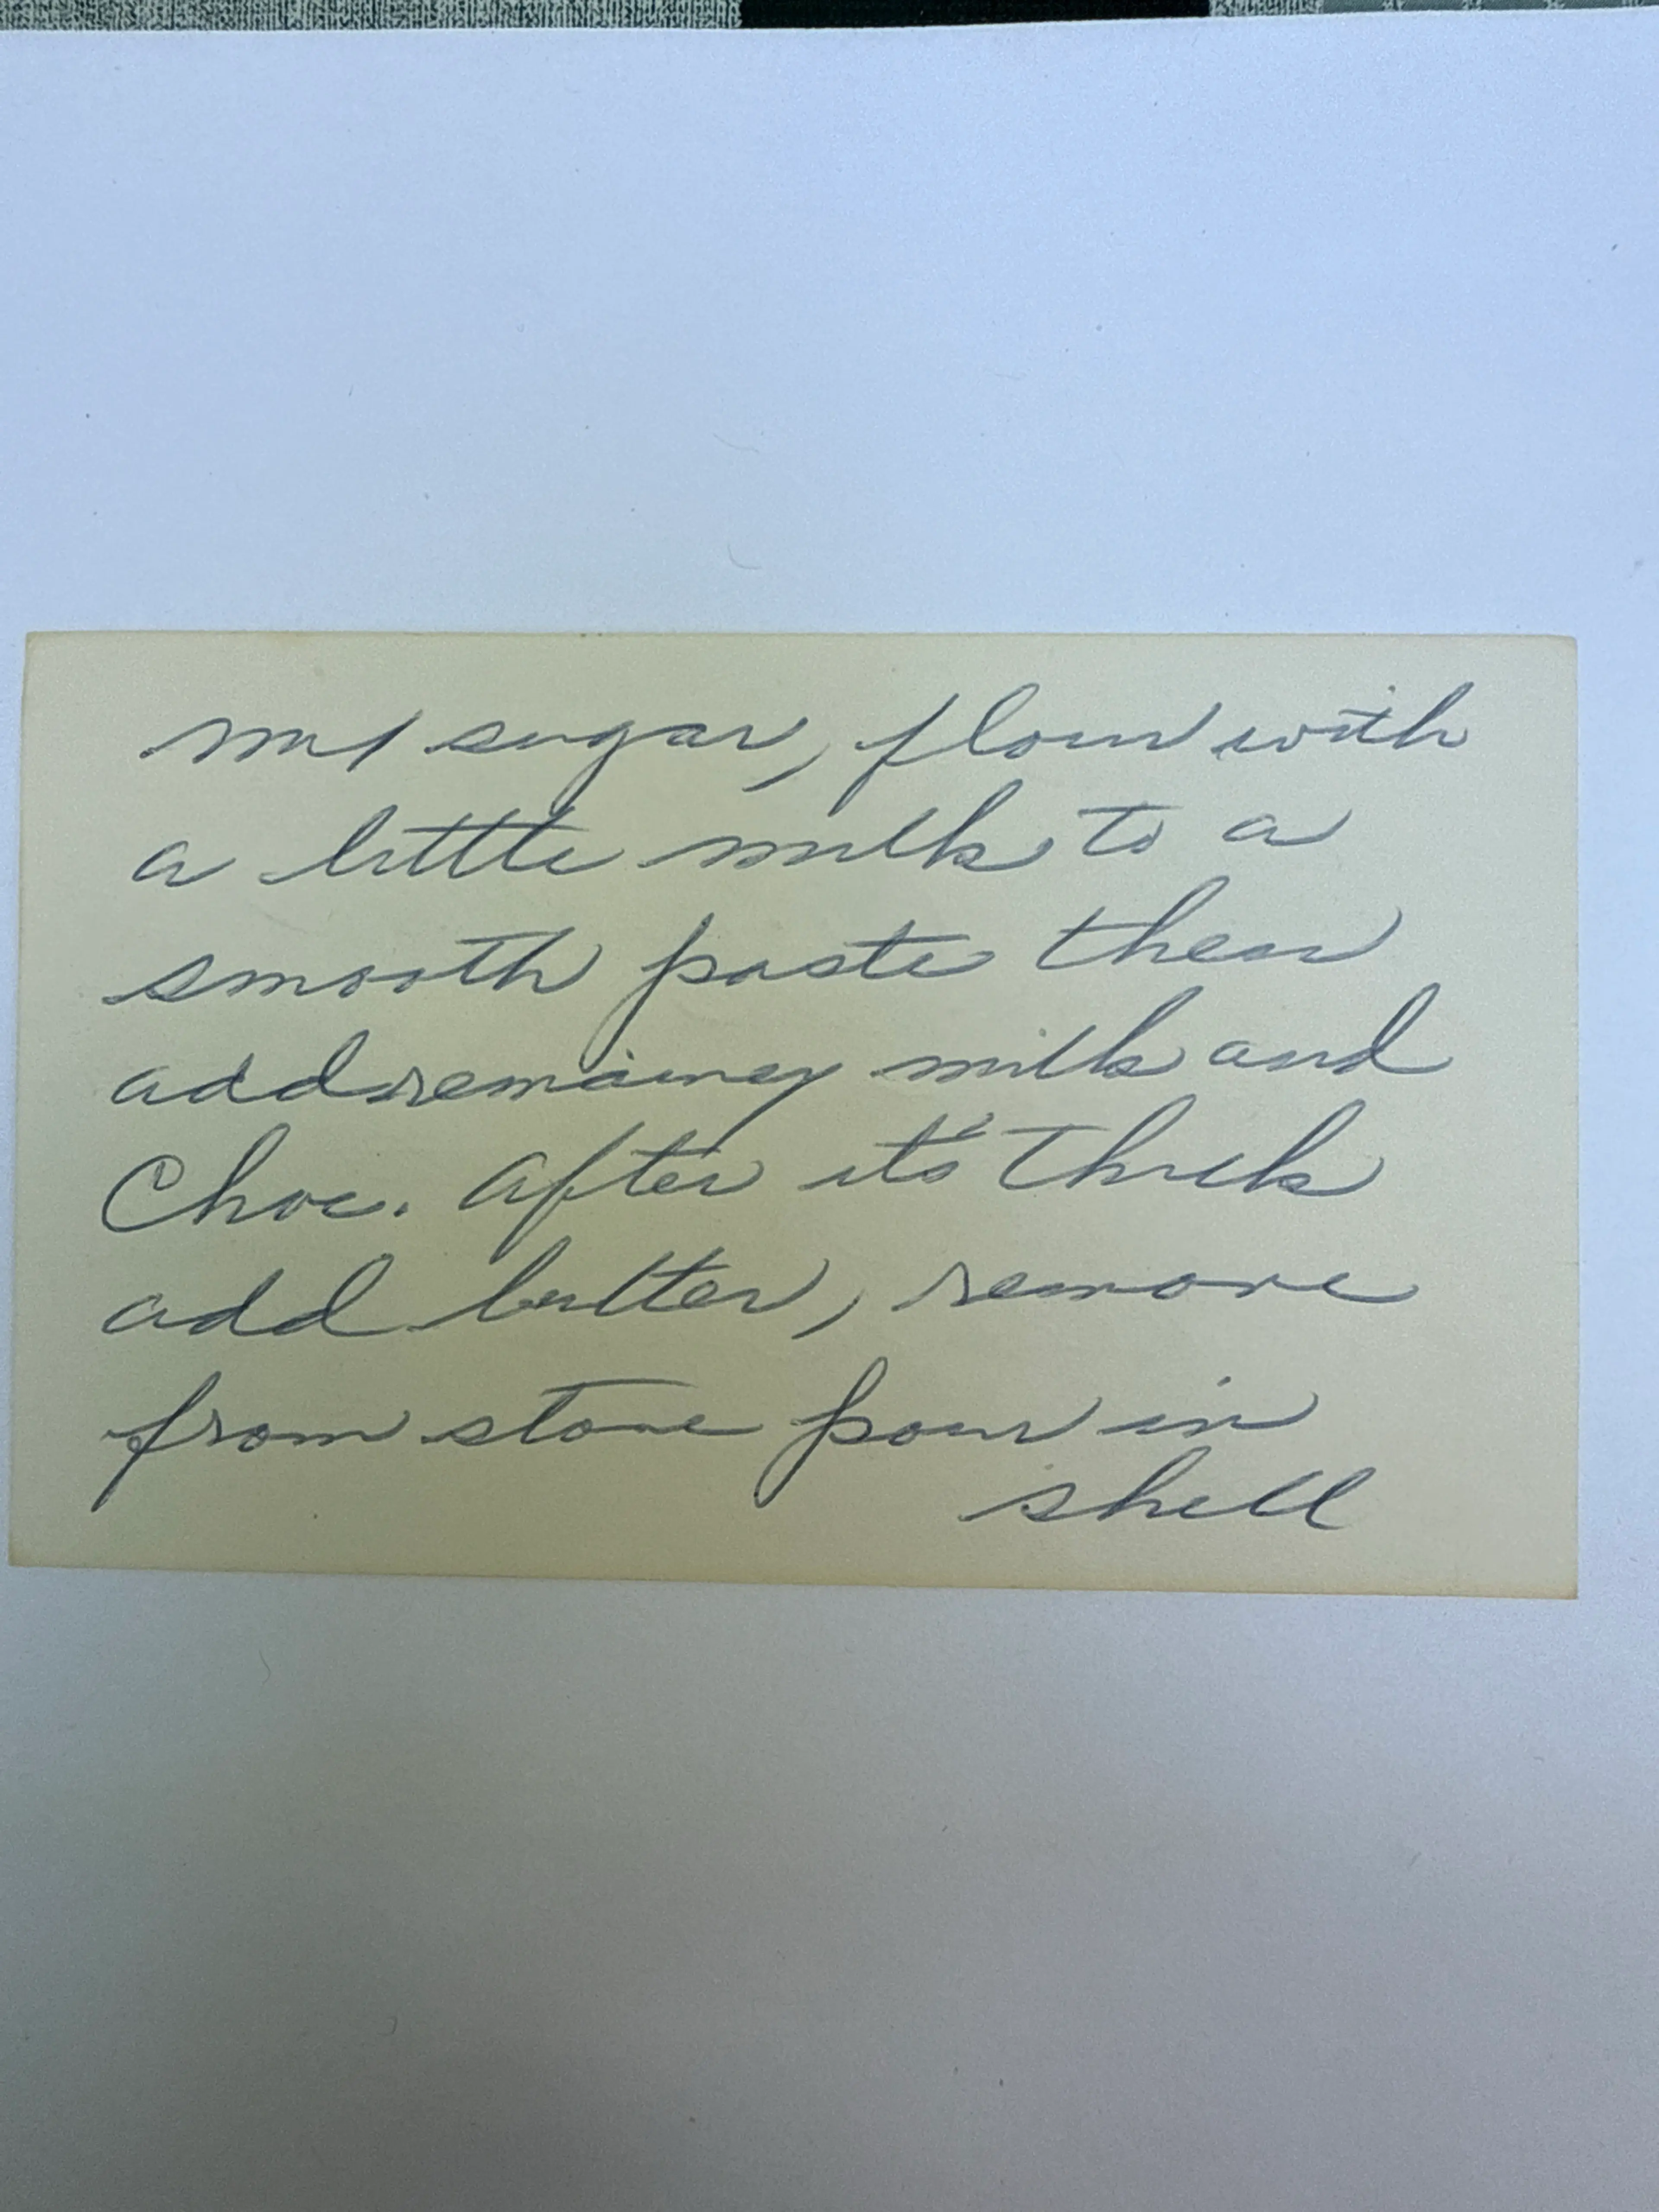 mix sugar, flour with
a little milk to a
smooth paste then
add remainey milk and
Choc. After it's thick
add butter, remove
from stove pour in
shell